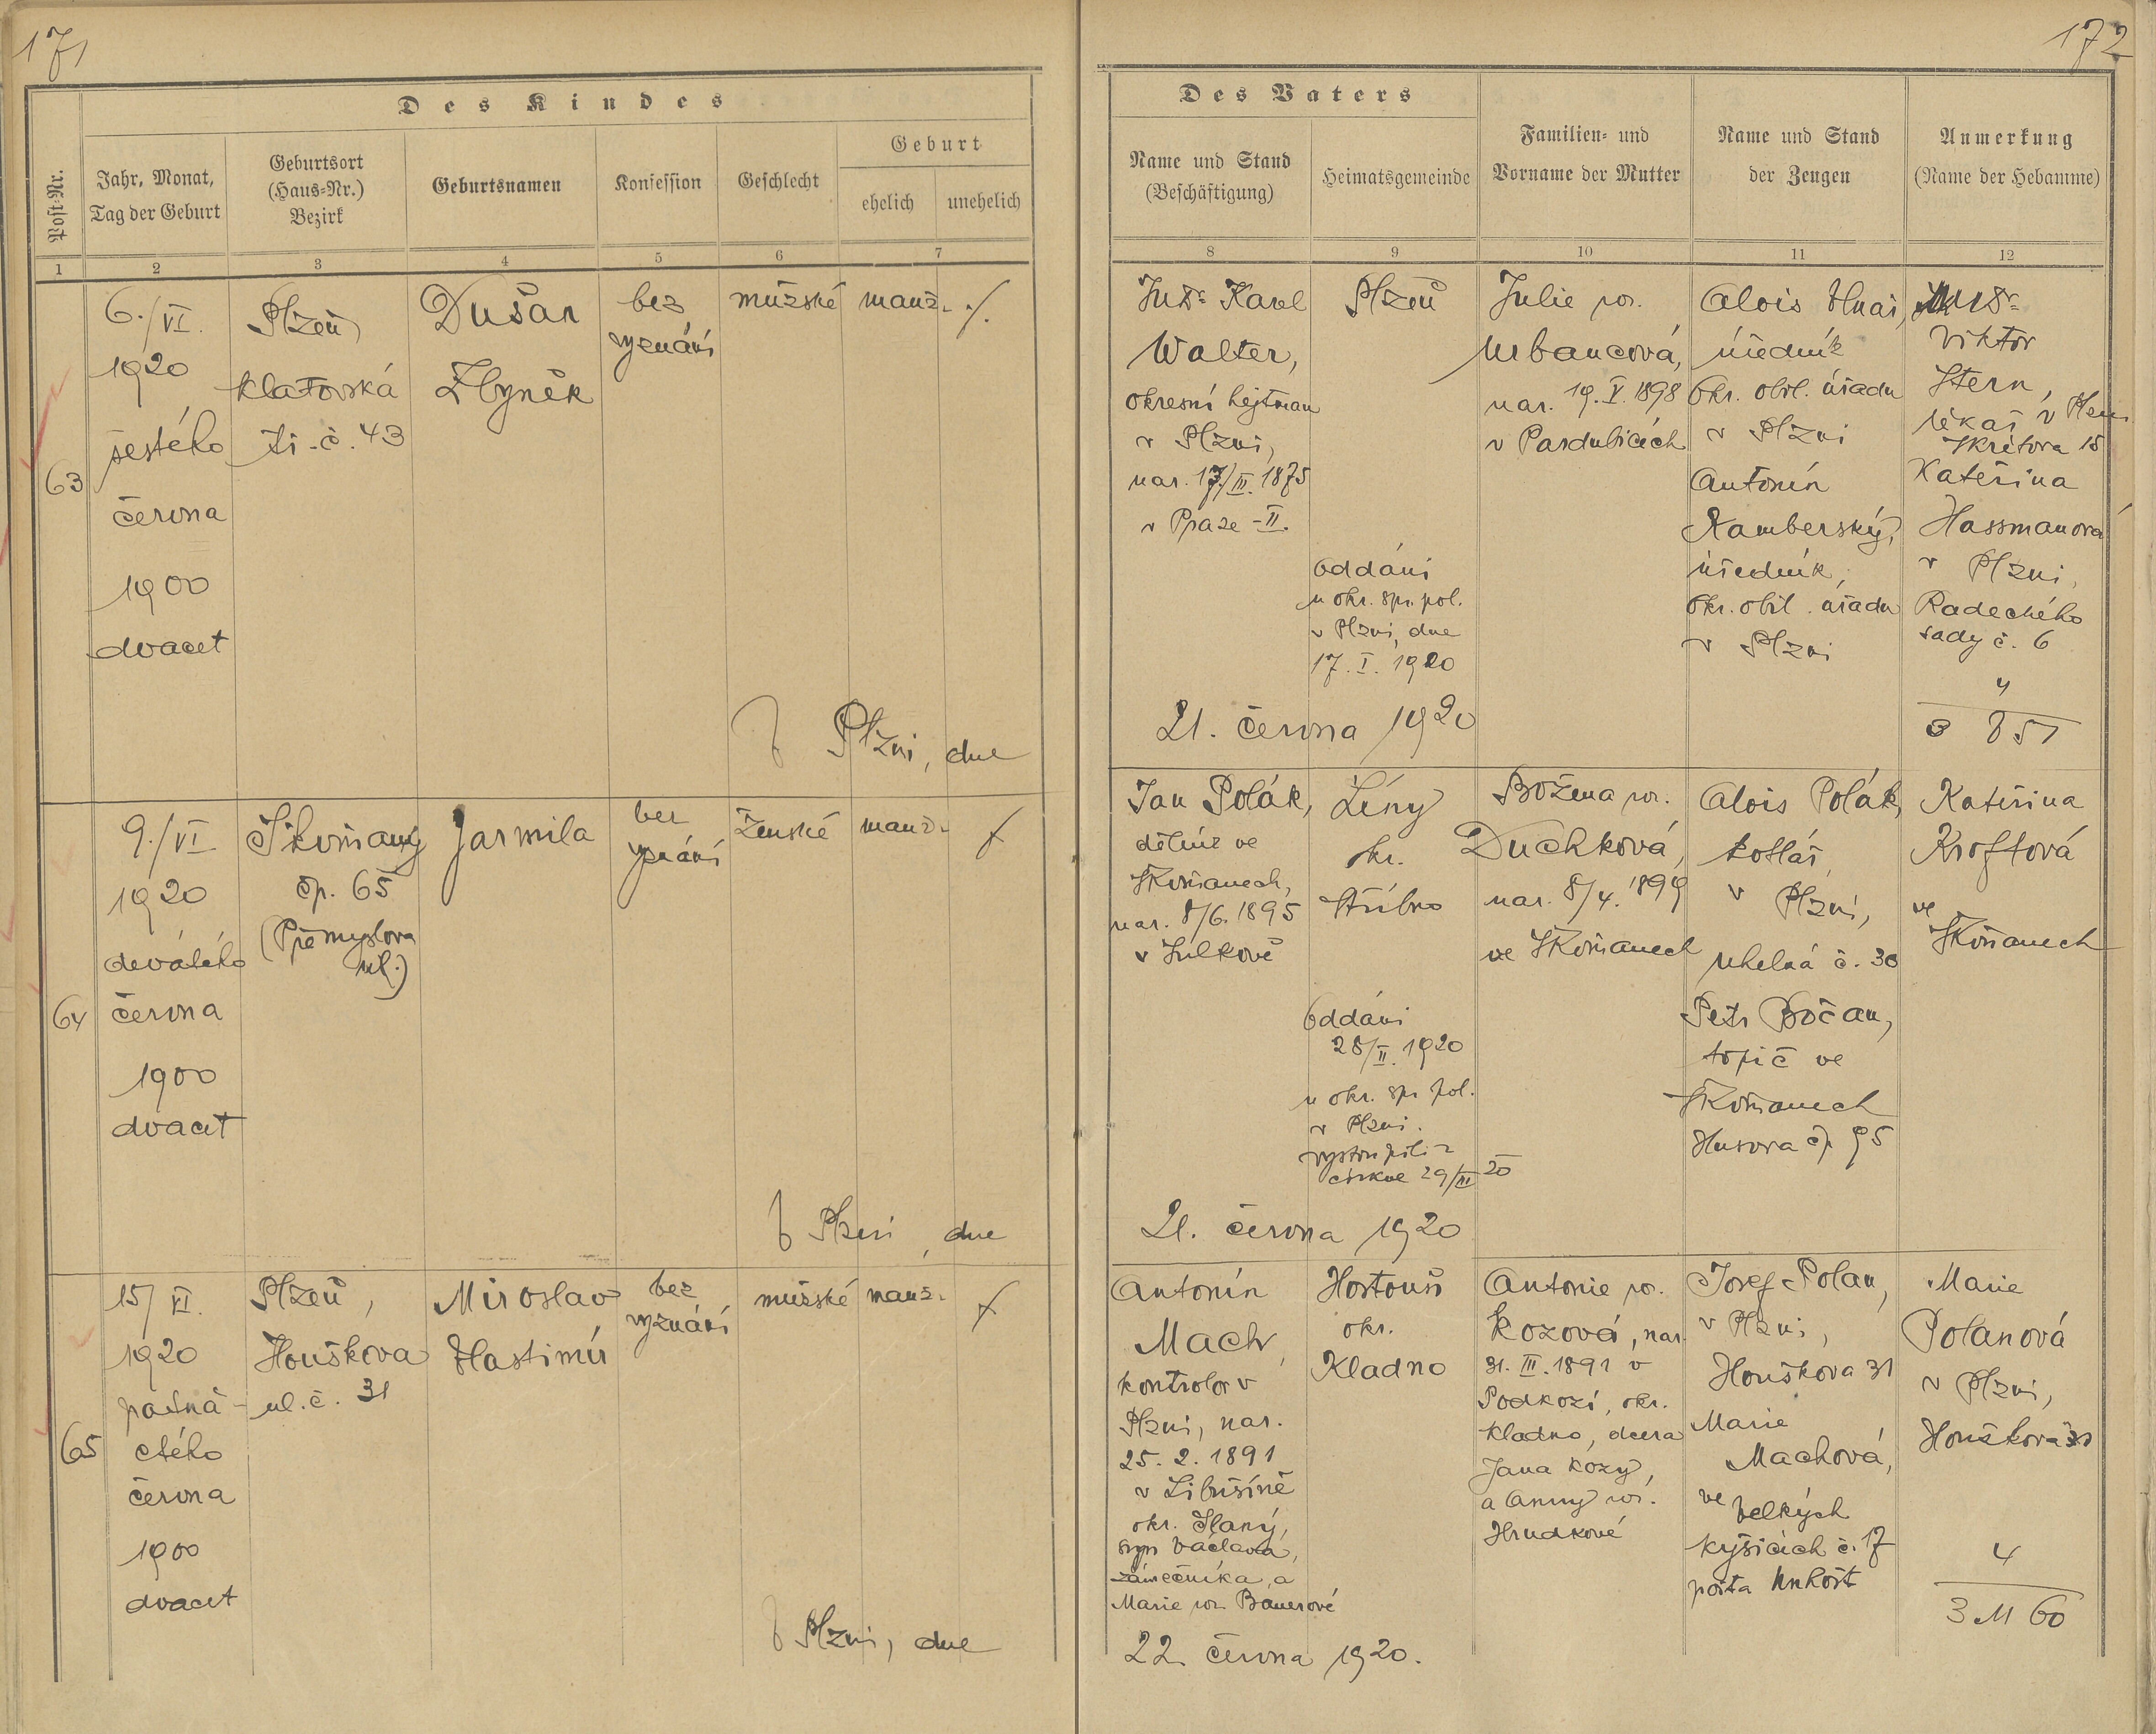 171
172
Des Kindes
Post-Nr.
Jahr, Monat,
Tag der Geburt
Geburtsort
(Haus-Nr.)
Bezirk
Geburtsnamen
Konfession
Geschlecht
Geburt
ehelich
unehelich
1
2
3
4
5
6
7
Des Vaters
Name und Stand
(Beschäftigung)
Heimatsgemeinde
Familien- und
Vorname der Mutter
Name und Stand
der Zeugen
Anmerkung
(Name der Hebamme)
8
9
10
11
12
63
6./VI.
1920
šestého
června
1900
dvacet
Plzeň,
Klatovská
tř. č. 43
Dušan
Zbyněk
bez
vyznání
mužské
manž.
./.
V Plzni, dne
JUDr. Karel
Walter,
okresní hejtman
v Plzni,
nar. 17/III. 1875
v Praze - II.
Plzeň
Oddáni
u okr. spr. pol.
v Plzni, dne
17. I. 1920
21. června 1920
Julie roz.
Urbancová,
nar. 19. V. 1898
v Pardubicích
Alois
úředník
Okr. obil. úřadu
v Plzni
Antonín
Kamberský,
úředník,
Okr. obil. úřadu
v Plzni
MUDr.
Viktor
Stern,
lékař v Plzni
Škrétova 15
Kateřina
Hassmanová
v Plzni,
Radeckého
sady č. 6
4
64
9./VI
1920
devátého
června
1900
dvacet
Škvrňany
čp. 65
(Přemyslova
ul.)
Jarmila
bez
vyznání
ženské
manž.
V Plzni, dne
Jan Polák,
dělník ve
Škvrňanech,
nar. 8/6. 1895
v Sulkově
Líny
okr.
Stříbro
Oddáni
28/II. 1920
u okr. spr. pol.
v Plzni.
vystoupili z
církve 29/III 20
21. června 1920
Božena roz.
Duchková,
nar. 8/4. 1899
ve Škvrňanech
Alois Polák,
kotlář
v Plzni,
Uhelná č. 30
Petr Bočan,
topič ve
Škvrňanech
Husova čp. 95
Kateřina
Kroftová
ve
Škvrňanech
65
15/VI.
1920
patná-
ctého
června
1900
dvacet
Plzeň,
Houškova
ul. č. 31
Miroslav
Vlastimír
bez
vyznání
mužské
manž.
V Plzni, dne
Antonín
Mach,
kontrolor v
Plzni, nar.
25. 2. 1891
v Libušíně
okr. Slaný,
syn Václava,
zámečníka, a
Marie roz. Bauerové
22. června 1920.
Hostouň
okr.
Kladno
Antonie roz.
Kozová, nar.
31. III. 1891 v
Podkozí, okr.
Kladno, dcera
Jana Kozy,
a Anny roz.
Hrudkové
Josef Polan,
v Plzni,
Houškova 31
Marie
Machová,
ve Velkých
Kyšicích č. 17
pošta Unhošť
Marie
Polanová
v Plzni,
Houškova 31
4
3 M 60